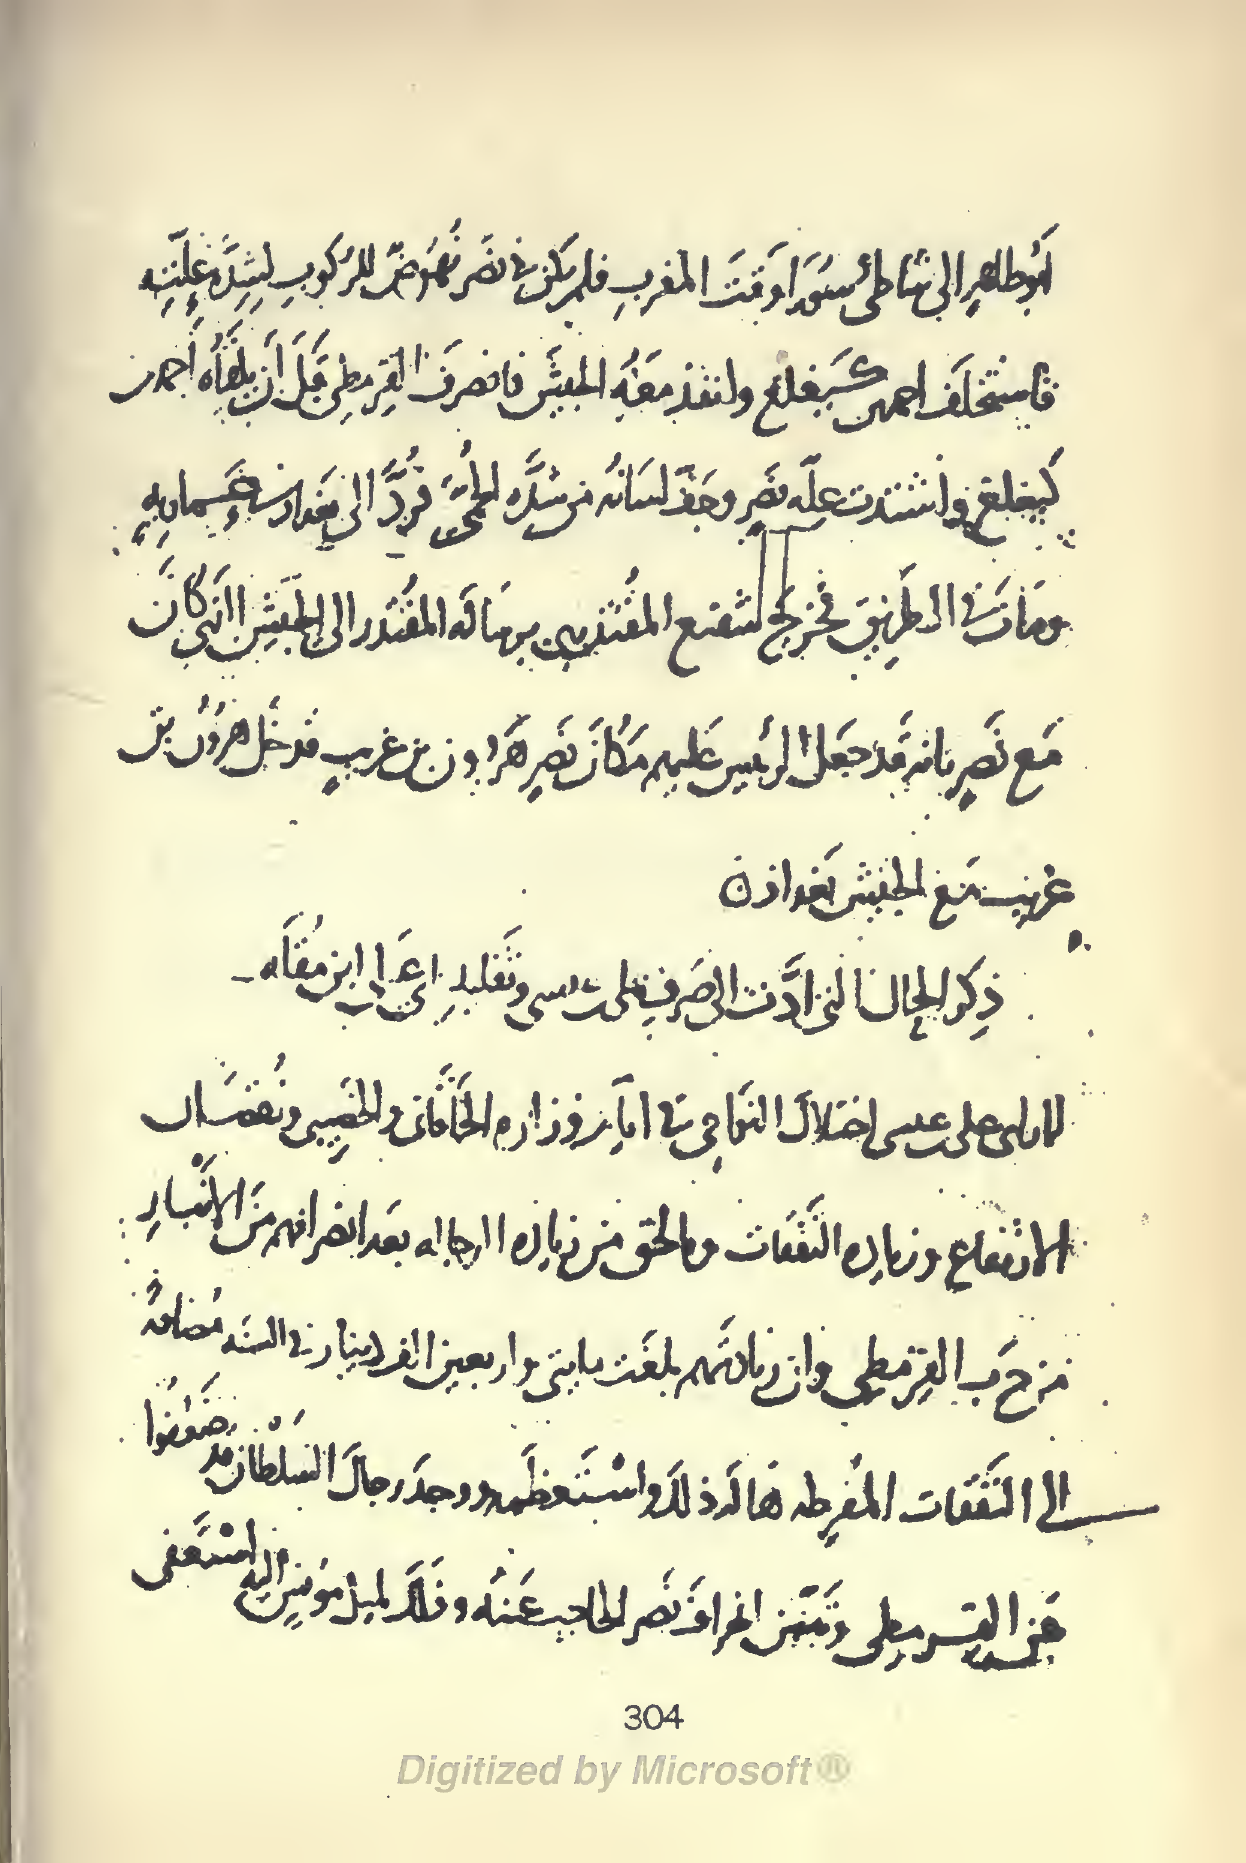 ابو طاهر الى شاطئ سورا وقت المغرب فلم يكن في نصر نهوض للركوب لشدة علته
فاستخلف احمد بن كيغلغ وانفذ معه الجيش فانصرف القرمطي قبل ان يلقاه احمد بن
كيغلغ واشتدت علة نصر وجف لسانه من شدة الحمى فرد الى بغداد في عمارية
ومات في الطريق فخرج شفيع المقتدري برسالة المقتدر الى الجيش الذي كان
مع نصر بانه قد جعل الرئيس عليهم مكان نصر هرون بن غريب فدخل هرون بن
غريب مع الجيش بغداد ن
ذكر الحال التي ادت الى صرف علي بن عيسى وتقليد ابي علي ابن مقلة
لما راى علي بن عيسى اختلال النواحي في ايام وزارة الخاقاني والخصيبي ونقصان
الارتفاع وزيادة النفقات وما لحق من زيادة الرجالة بعد انصرافهم من الانبار
من حرب القرمطي وان زيادتهم بلغت مايتي واربعين الف دينار في السنة مضافة
الى النفقات المفرطة هاله ذلك واستعظمه ووجد رجال السلطان قد ضعفوا
عن القرمطي وتبين انحراف نصر الحاجب عنه وذلك لميل مونس اليه استعفى
304
Digitized by Microsoft®